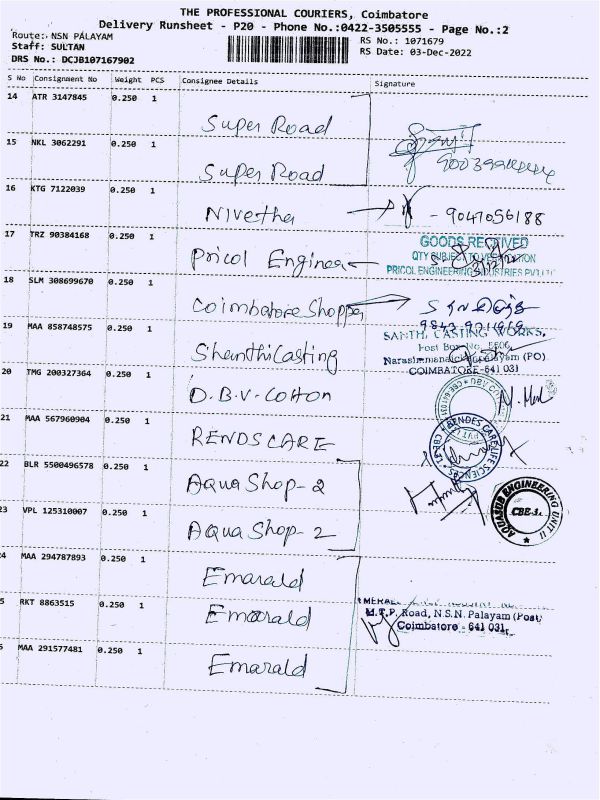 THE PROFESSIONAL COURIERS, Coimbatore
Delivery Runsheet - P20 - Phone No.:0422-3505555 - Page No.:2
Route: NSN PALAYAM
RS No.: 1071679
Staff: SULTAN
RS Date: 03-Dec-2022
DRS No.: DCJB107167902
S No Consignment No Weight PCS Consignee Details Signature
14 ATR 3147845 0.250 1
Super Road
15 NKL 3062291 0.250 1
Super Road
16 KTG 7122039 0.250 1
Nivetha - 9047056188
17 TRZ 90384168 0.250 1
GOODS RECEIVED
Pricol Engineer
QTY SUBJECT TO VERIFICATION
PRICOL ENGINEERING INDUSTRIES PVT LTD
18 SLM 308699670 0.250 1
Coimbatore Shoppe
19 MAA 858748575 0.250 1
SANTHI CASTING WORKS,
Post Box No. 5606,
Shanthi Casting
Narasimmanaickenpalayam (PO)
COIMBATORE-641 031
20 TMG 200327364 0.250 1
D.B.V. Cotton
21 MAA 567960904 0.250 1
RENDS CARE
22 BLR 5500496578 0.250 1
Aqua Shop-2
AQUASUB ENGINEERING UNIT II
CBE-31.
23 VPL 125310007 0.250 1
Aqua Shop-2
4 MAA 294787893 0.250 1
Emarald
5 RKT 8863515 0.250 1
Emarald
M.T.P. Road, N.S.N. Palayam (Post)
Coimbatore - 641 031.
6 MAA 291577481 0.250 1
Emarald